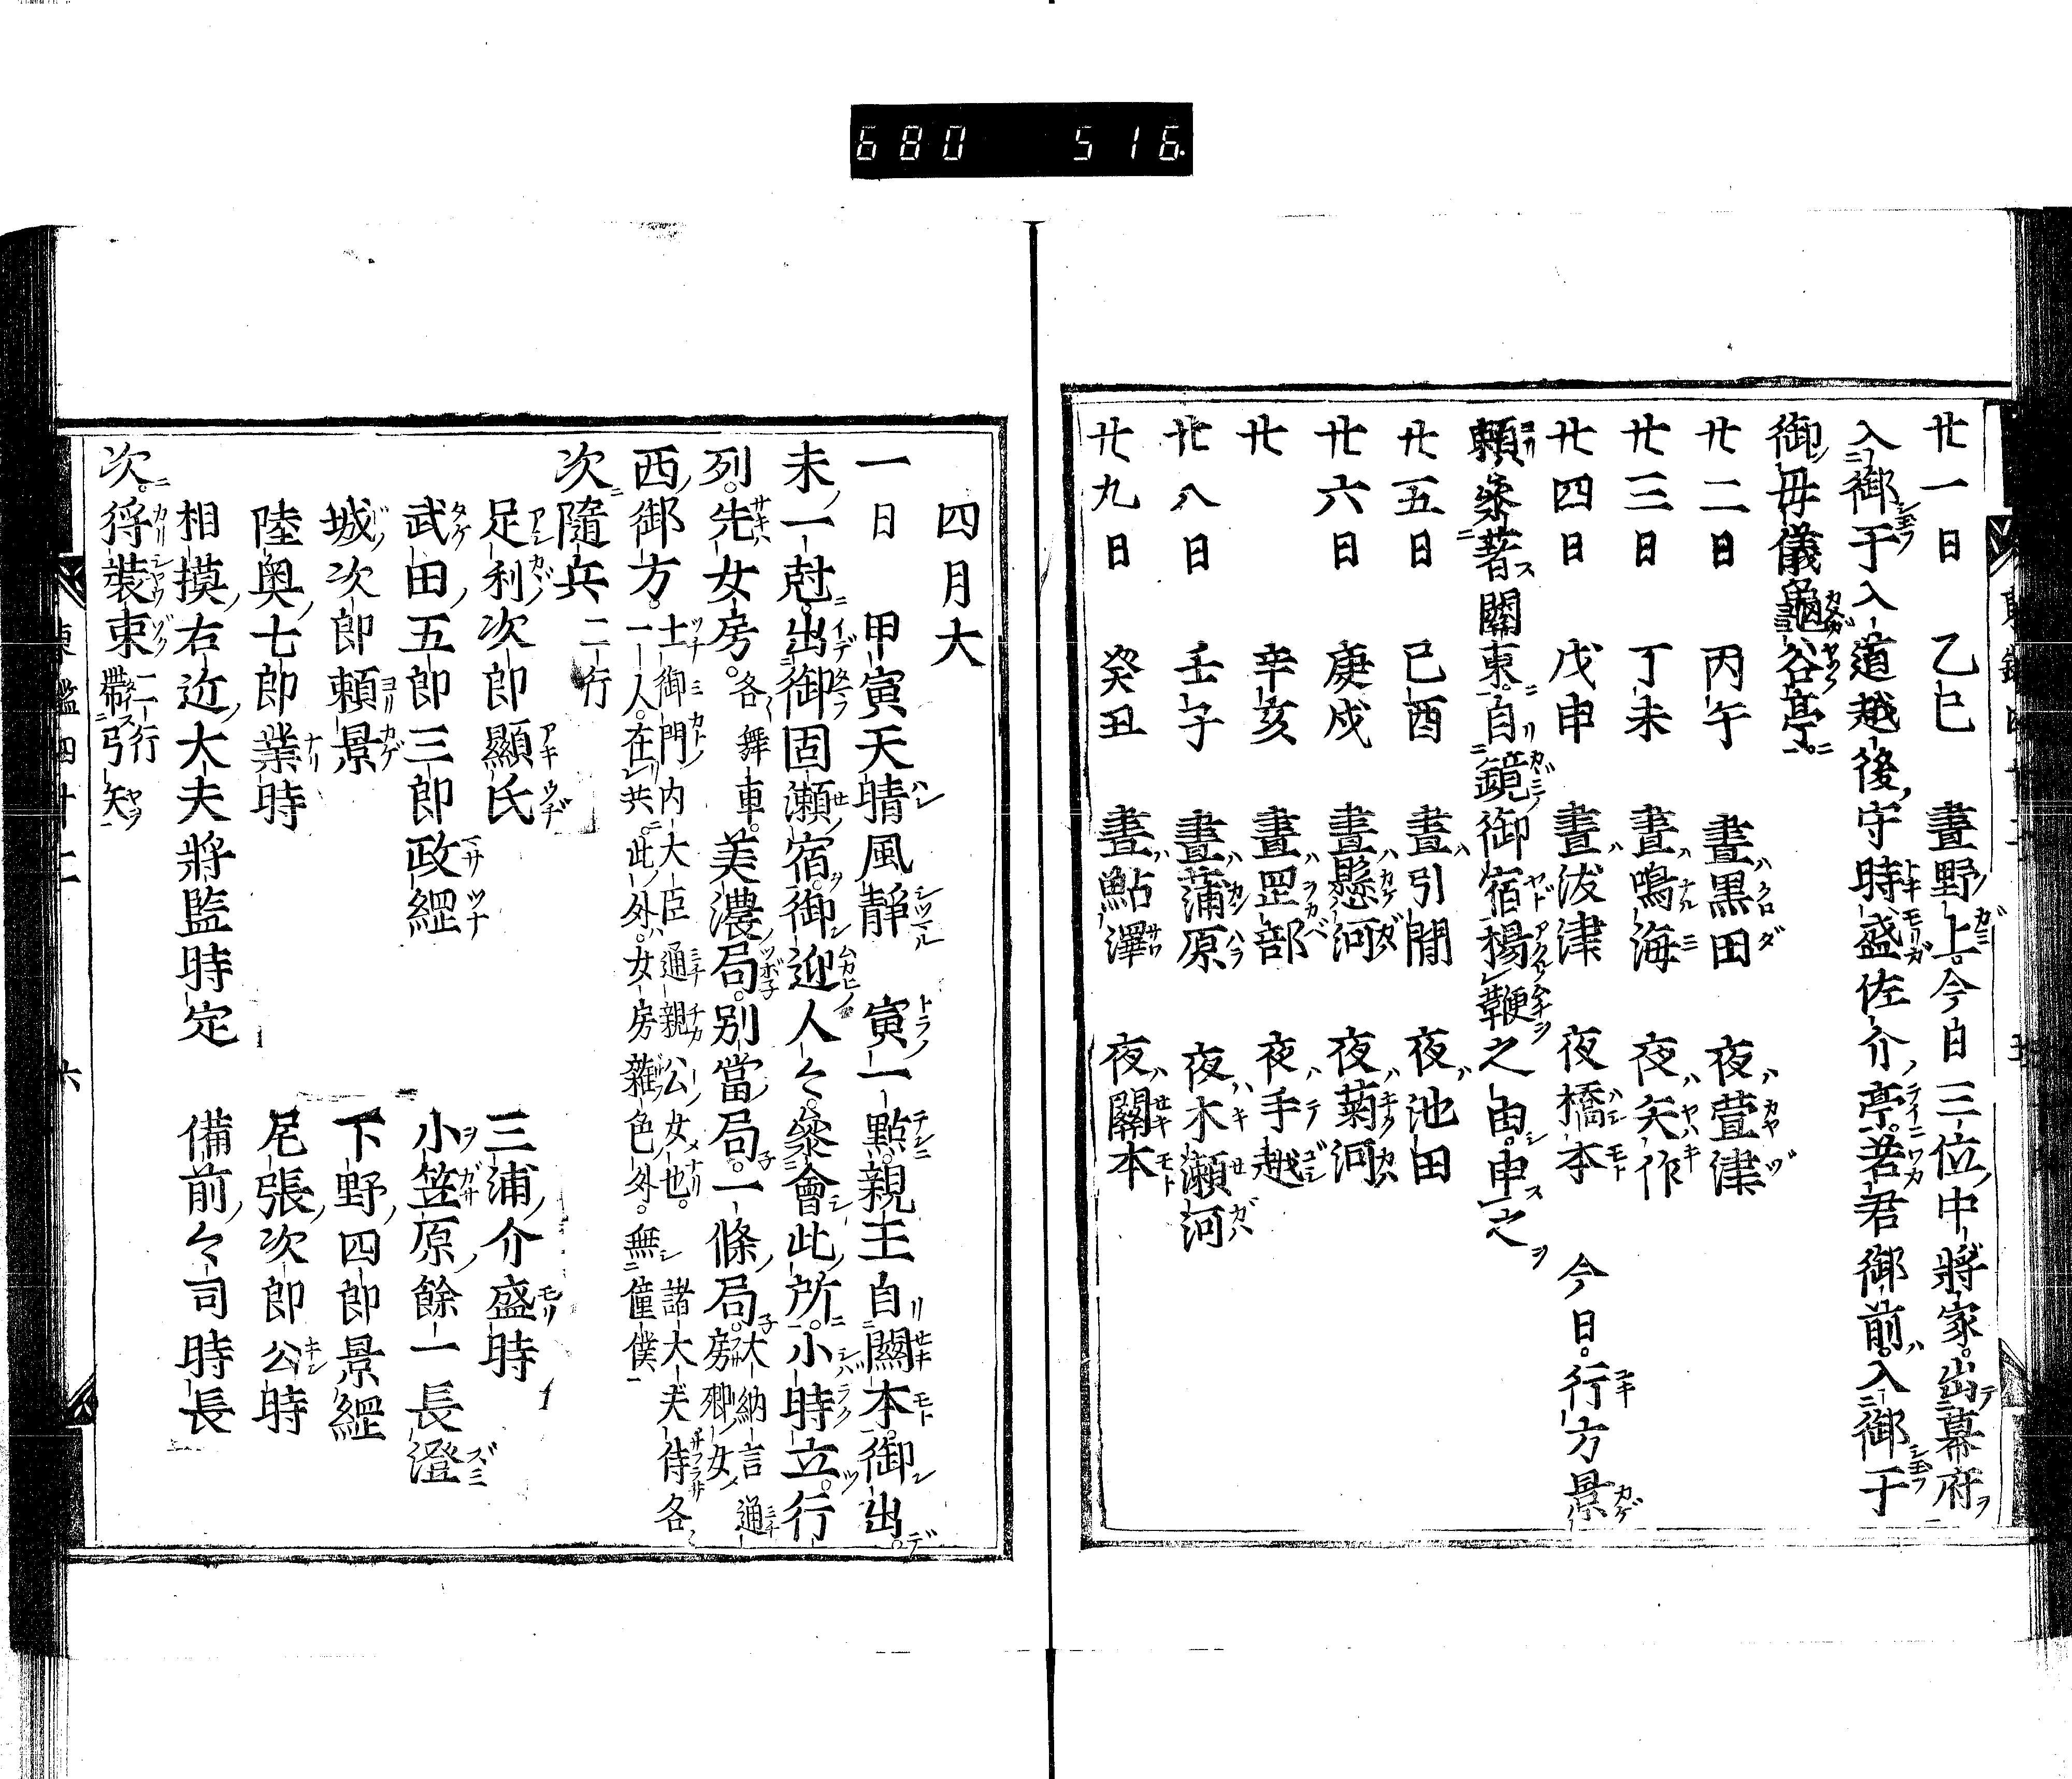 680 516
廿一日 乙巳 晝野上。今日三位中將家。出幕府
入御于入道越後守時盛佐介亭。若君御前。入御于
御母儀龜谷亭。
廿二日 丙午 晝黒田 夜萱津
廿三日 丁未 晝鳴海 夜矢作
廿四日 戊申 晝渡津 夜橋本 今日。行方景
頼參著關東。自鏡御宿揚鞭之由。申之
廿五日 己酉 晝引間 夜池田
廿六日 庚戌 晝懸河 夜菊河
廿 辛亥 晝罡部 夜手越
廿八日 壬子 晝蒲原 夜木瀬河
廿九日 癸丑 晝鮎澤 夜關本
四月大
一日 甲寅天晴風靜 寅一點。親王自關本。御出。
未一尅。出御固瀬宿。御迎人々。參會此所。小時立。行
列。先女房。各舞車。美濃局。別當局。一條局。大納言通方卿女
西御方。土御門内大臣通親公女也。諸大夫侍各一人。在共。此外。女房雜色外。無僮僕
次隨兵 二行
足利次郎顯氏 三浦介盛時
武田五郎三郎政經 小笠原餘一長澄
城次郎頼景 下野四郎景經
陸奥七郎業時 尾張次郎公時
相摸右近大夫將監時定 備前々司時長
次。狩裝束 二行帶弓矢
六